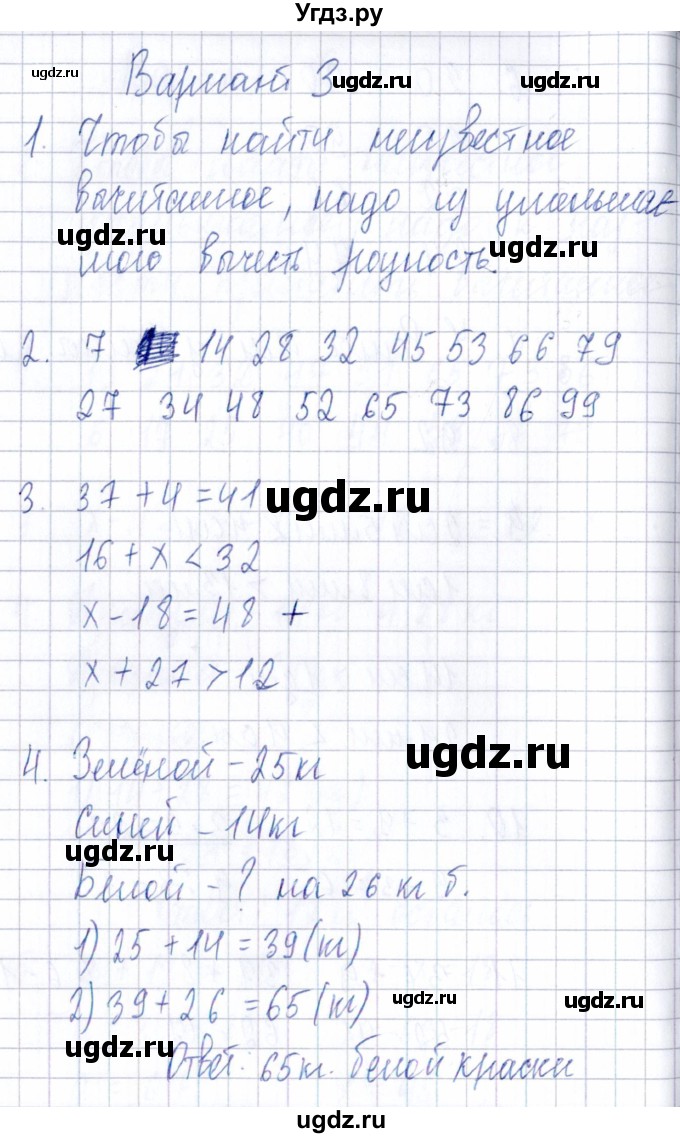 Угдз.ру
Вариант 3
1. Чтобы найти неизвестное
вычитаемое, надо из уменьшае-
мого вычесть разность.
2. 7 14 28 32 45 53 66 79
27 34 48 52 65 73 86 99
3. 37 + 4 = 41
16 + x < 32
x - 18 = 48 +
x + 27 > 12
4. Зелёной - 25 кг
Синей - 14 кг
Белой - ? на 26 кг б.
1) 25 + 14 = 39 (кг)
2) 39 + 26 = 65 (кг)
Ответ: 65 кг. белой краски
ugdz.ru
ugdz.ru
ugdz.ru
ugdz.ru
ugdz.ru
ugdz.ru
ugdz.ru
ugdz.ru
ugdz.ru
ugdz.ru
ugdz.ru
ugdz.ru
ugdz.ru